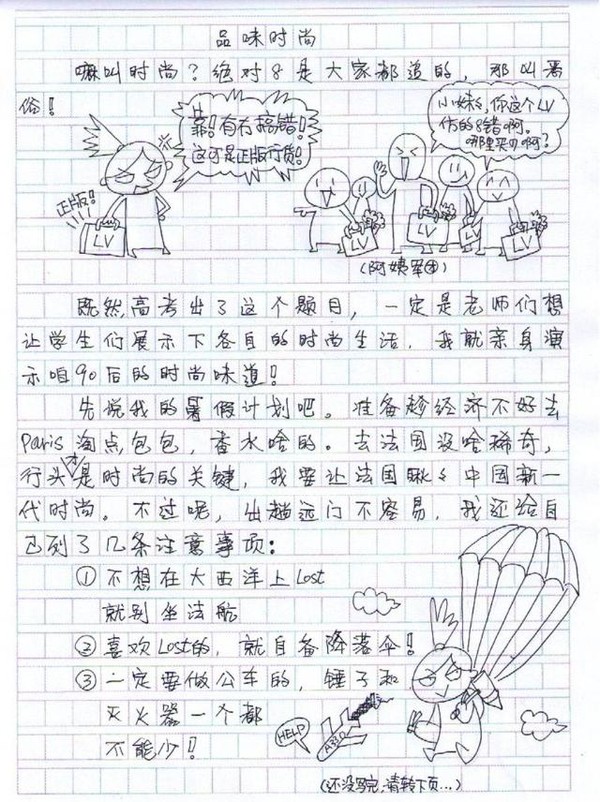 品味时尚
嘛叫时尚？绝对8是大家都追的，那叫恶
俗！
靠！有冇搞错！
这可是正版行货！
小妹々，你这个LV
仿的8错啊。
哪里买的啊？
正版！
LV
LV
LV
LV
LV
(阿姨军团)
既然高考出了这个题目，一定是老师们想
让学生们展示下各自的时尚生活，我就亲身演
示咱90后的时尚味道！
先说我的暑假计划吧。准备趁经济不好去
Paris淘点包包，香水啥的。去法国没啥稀奇，
行头才是时尚的关键，我要让法国瞅々中国新一
代时尚。不过呢，出趟远门不容易，我还给自
己列了几条注意事项：
①不想在大西洋上Lost
就别坐法航
②喜欢Lost的，就自备降落伞！
③一定要做公车的，锤子和
灭火器一个都
不能少！
HELP
A330
(还没写完，请转下页...)